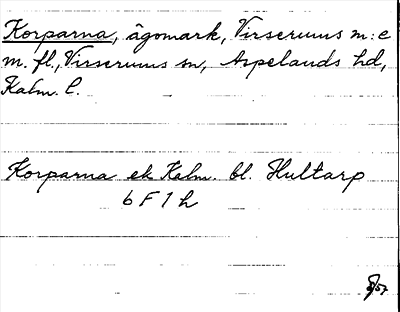 Korparna, ägomark, Virserums m:e
m. fl., Virserums sn, Aspelands hd,
Kalm. l.
Korparna ek Kalm. bl. Hultarp
6 F 1 h